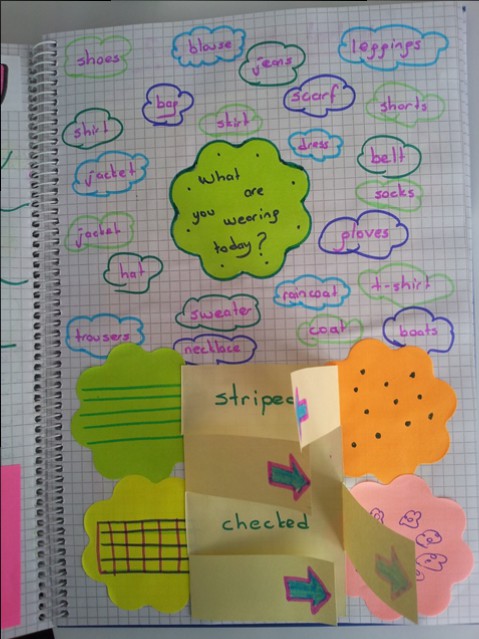 shoes
blouse
jeans
leggings
bag
scarf
shorts
shirt
skirt
dress
belt
jacket
socks
What
are
you wearing
today?
jacket
gloves
hat
raincoat
t-shirt
sweater
trousers
necklace
coat
boots
striped
checked